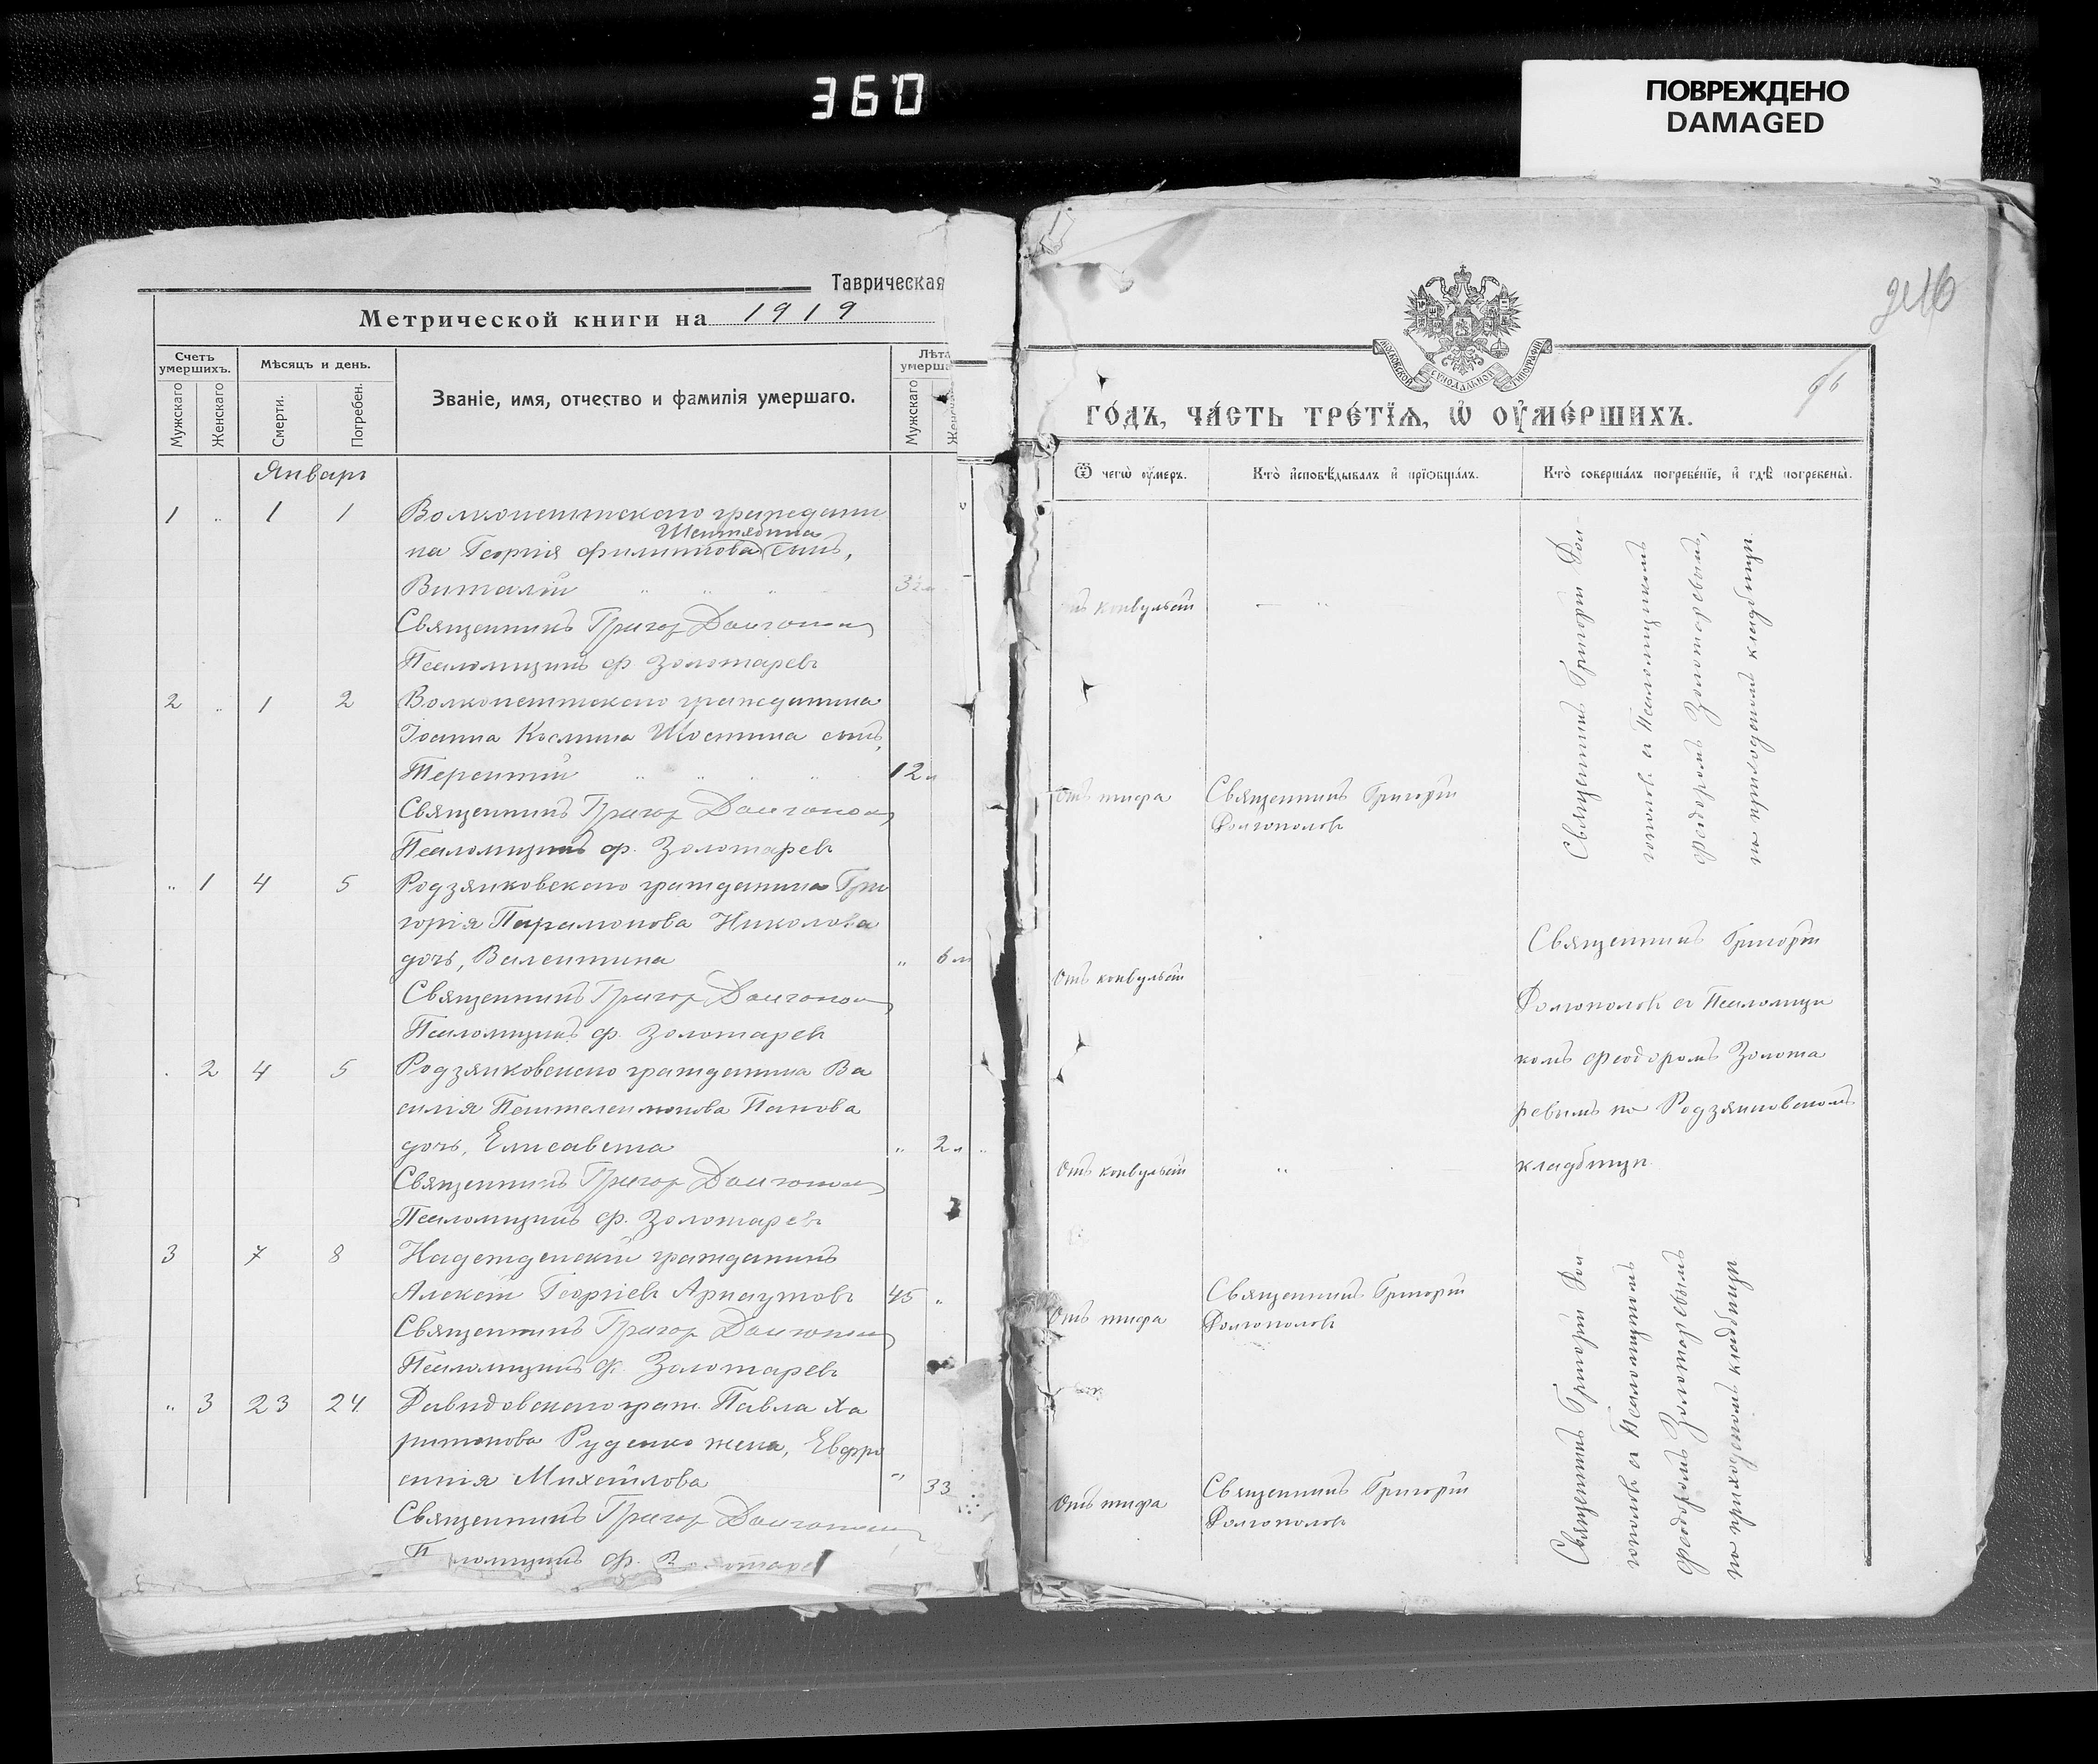 360
ПОВРЕЖДЕНО
DAMAGED
Таврическая
Метрической книги на 1919
Счетъ умершихъ.
Мужскаго
Женскаго
Мѣсяцъ и день.
Смерти.
Погребен.
Званіе, имя, отчество и фамилія умершаго.
Лѣта
умерша
Мужскаго
Январь
1 " 1 1 Волконештскаго граждани
на Георгія Филиппова сынъ,
Виталій
Священникъ Григор Долгопол
Псаломщикъ Ф. Золотаревъ
2 " 1 2 Волконештскаго гражданина
Іоанна Космина сынъ,
Терентій " " " " 12
Священникъ Григор Долгопол
Псаломщикъ Ф. Золотаревъ
" 1 4 5 Родзянковскаго гражданина Гри
горія Парамонова Николова
дочь, Валентина " 6 м
Священникъ Григор Долгопол
Псаломщикъ Ф. Золотаревъ
2 4 5 Родзянковскаго гражданина Ва
силія Пантелеимонова Панова
дочь, Елисавета " 2
Священникъ Григор Долгопол
Псаломщикъ Ф. Золотаревъ
3 7 8 Надеждинскій гражданинъ
Алексѣй Георгіевъ Арнаутовъ 45 "
Священникъ Григор Долгопол
Псаломщикъ Ф. Золотаревъ
" 3 23 24 Давидовскаго граж. Павла Ха
ритонова Руденко жена, Евфро
синія Михайлова " 33
Священникъ Григор Долгопол
Ф.
66
МОСКОВСКОЙ СѴНОДАЛЬНОЙ ТИПОГРАФІИ
го́дъ, ча́сть тре́тїѧ, ѡ҆ ᲂу҆ме́ршихъ.
Ѿ чегѡ̀ ᲂу҆́меръ.
Кто̀ и҆сповѣ́дывалъ и҆ прїѡбща́лъ.
Кто̀ соверша́лъ погребе́нїе, и҆ гдѣ̀ погребены̀.
конвульсій
Священникъ Григорій Дол-
гополовъ съ Псаломщикомъ
Феодоромъ Золотаревымъ,
на приходскомъ кладбищѣ.
Отъ тифа
Священникъ Григорій
Долгополовъ
Отъ конвульсій
Священникъ Григорій
Долгополовъ съ Псаломщи
комъ Феодоромъ Золота
ревымъ на Родзянковскомъ
кладбищѣ.
Отъ конвульсій
"
Отъ тифа
Священникъ Григорій
Долгополовъ
Священникъ Григорій Дол
гополовъ съ Псаломщикомъ
Феодоромъ Золотаревымъ
на приходскомъ кладбищѣ
Отъ тифа
Священникъ Григорій
Долгополовъ